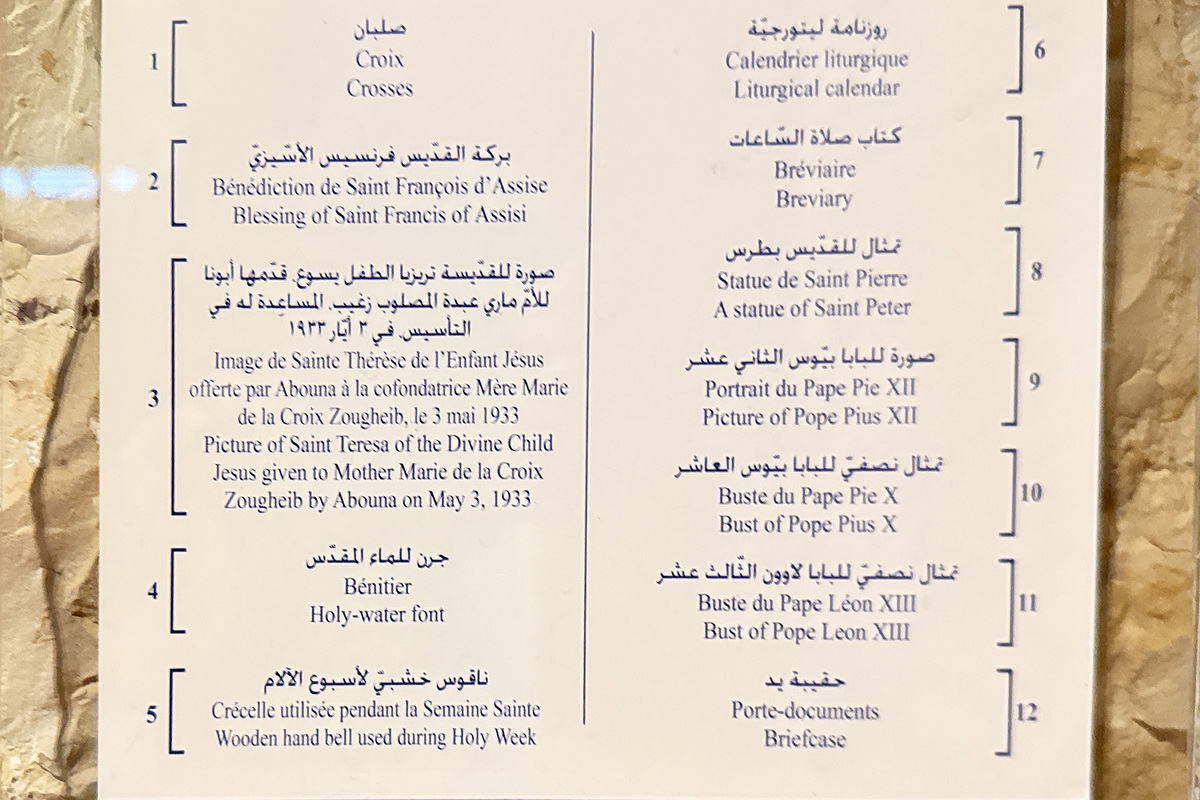 1
صلبان
Croix
Crosses
2
بركة القدّيس فرنسيس الأسّيزيّ
Bénédiction de Saint François d'Assise
Blessing of Saint Francis of Assisi
3
صورة للقدّيسة تريزيا الطفل يسوع، قدّمها أبونا
للأمّ ماري عبدة المصلوب زغيب، المساعِدة له في
التأسيس، في ٣ أيّار ١٩٣٣
Image de Sainte Thérèse de l'Enfant Jésus
offerte par Abouna à la cofondatrice Mère Marie
de la Croix Zougheib, le 3 mai 1933
Picture of Saint Teresa of the Divine Child
Jesus given to Mother Marie de la Croix
Zougheib by Abouna on May 3, 1933
4
جرن للماء المقدّس
Bénitier
Holy-water font
5
ناقوس خشبيّ لأسبوع الآلام
Crécelle utilisée pendant la Semaine Sainte
Wooden hand bell used during Holy Week
6
روزنامة ليتورجيّة
Calendrier liturgique
Liturgical calendar
7
كتاب صلاة السّاعات
Bréviaire
Breviary
8
تمثال للقدّيس بطرس
Statue de Saint Pierre
A statue of Saint Peter
9
صورة للبابا بيّوس الثاني عشر
Portrait du Pape Pie XII
Picture of Pope Pius XII
10
تمثال نصفيّ للبابا بيّوس العاشر
Buste du Pape Pie X
Bust of Pope Pius X
11
تمثال نصفيّ للبابا لاوون الثّالث عشر
Buste du Pape Léon XIII
Bust of Pope Leon XIII
12
حقيبة يد
Porte-documents
Briefcase